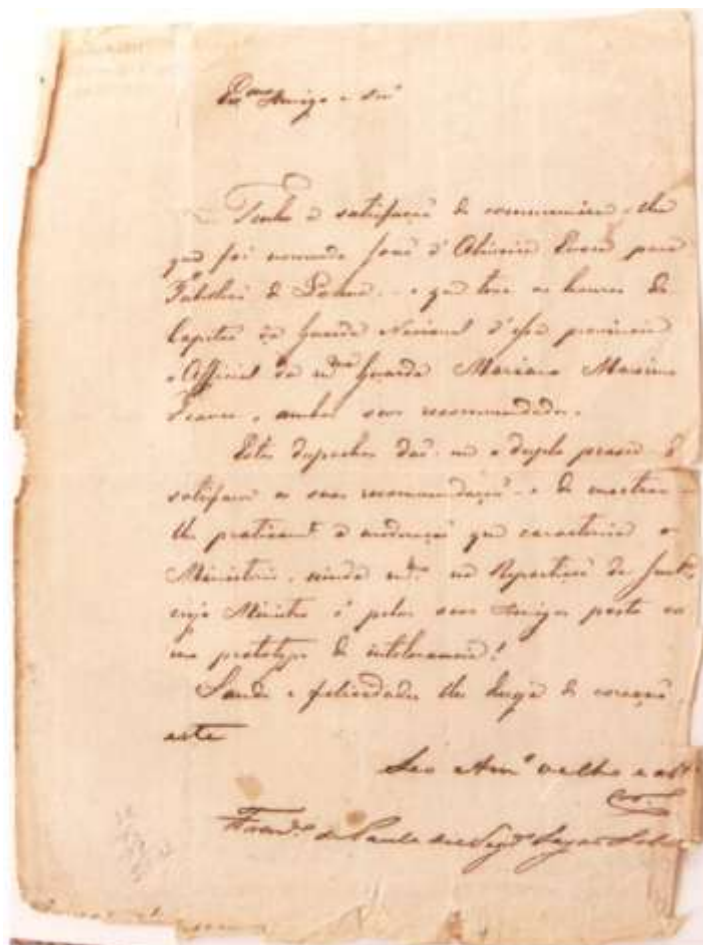 Ex.mo Amigo e Sn.r
Tenho a satisfação de communicar-lhe
que foi nomeado João d'Oliveira para
Tabelião de e que teve as honras de
Capitão da Guarda Nacional d'essa provincia
o Official da m.ma Guarda Mariano Maximo
ambos seus recommendados.
Estes despachos dão-me o duplo praser de
satisfazer as suas recommendações e de mostrar-
lhe praticam.e a moderação que caracterisa o
Ministerio, ainda m.mo na Repartição da Just.ça
cujo Ministro é pelos seus amigos posto
um prototypo de intolerancia!
Saude e felicidades lhe deseja de coração
este
Seo Am.o velho e
Fran.co de Paula de